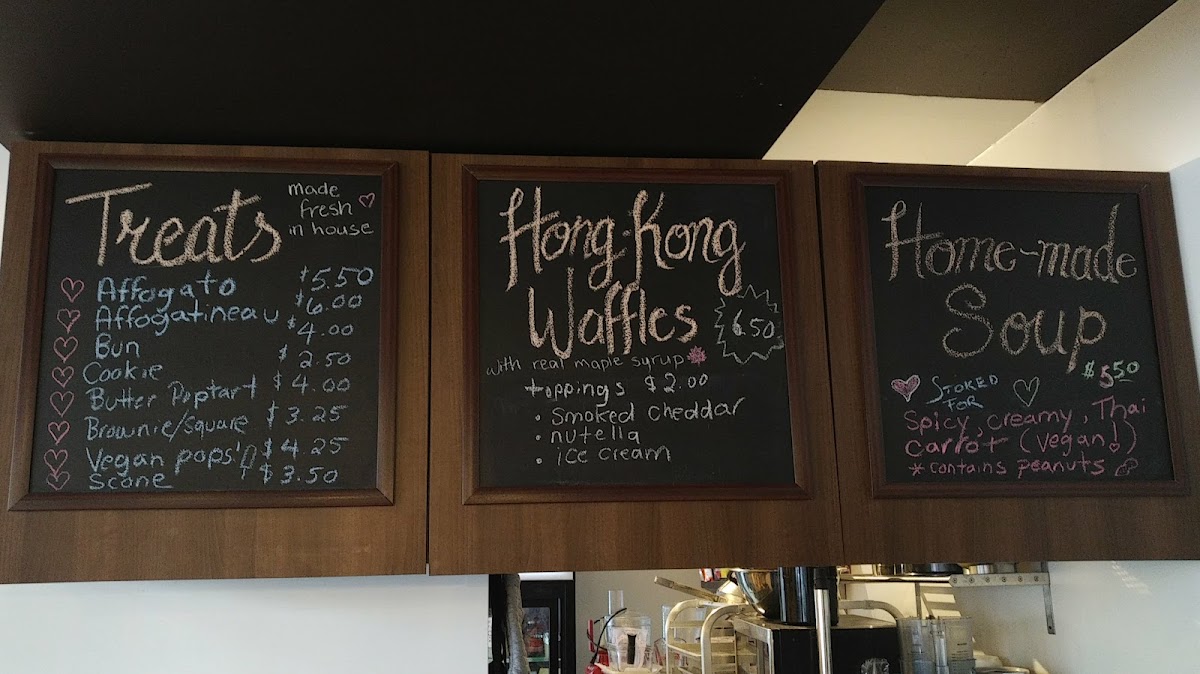 Treats
made
fresh
in house
Affogato $5.50
Affogatineau $6.00
Bun $4.00
Cookie $2.50
Butter Poptart $4.00
Brownie/Square $3.25
Vegan pops'n $4.25
Scone $3.50
Hong-Kong
Waffles
6.50
with real maple syrup
toppings $2.00
• Smoked Cheddar
• nutella
• ice cream
Home-made
Soup
$5.50
STOKED
FOR
Spicy, creamy, Thai
Carrot (vegan!)
*contains peanuts